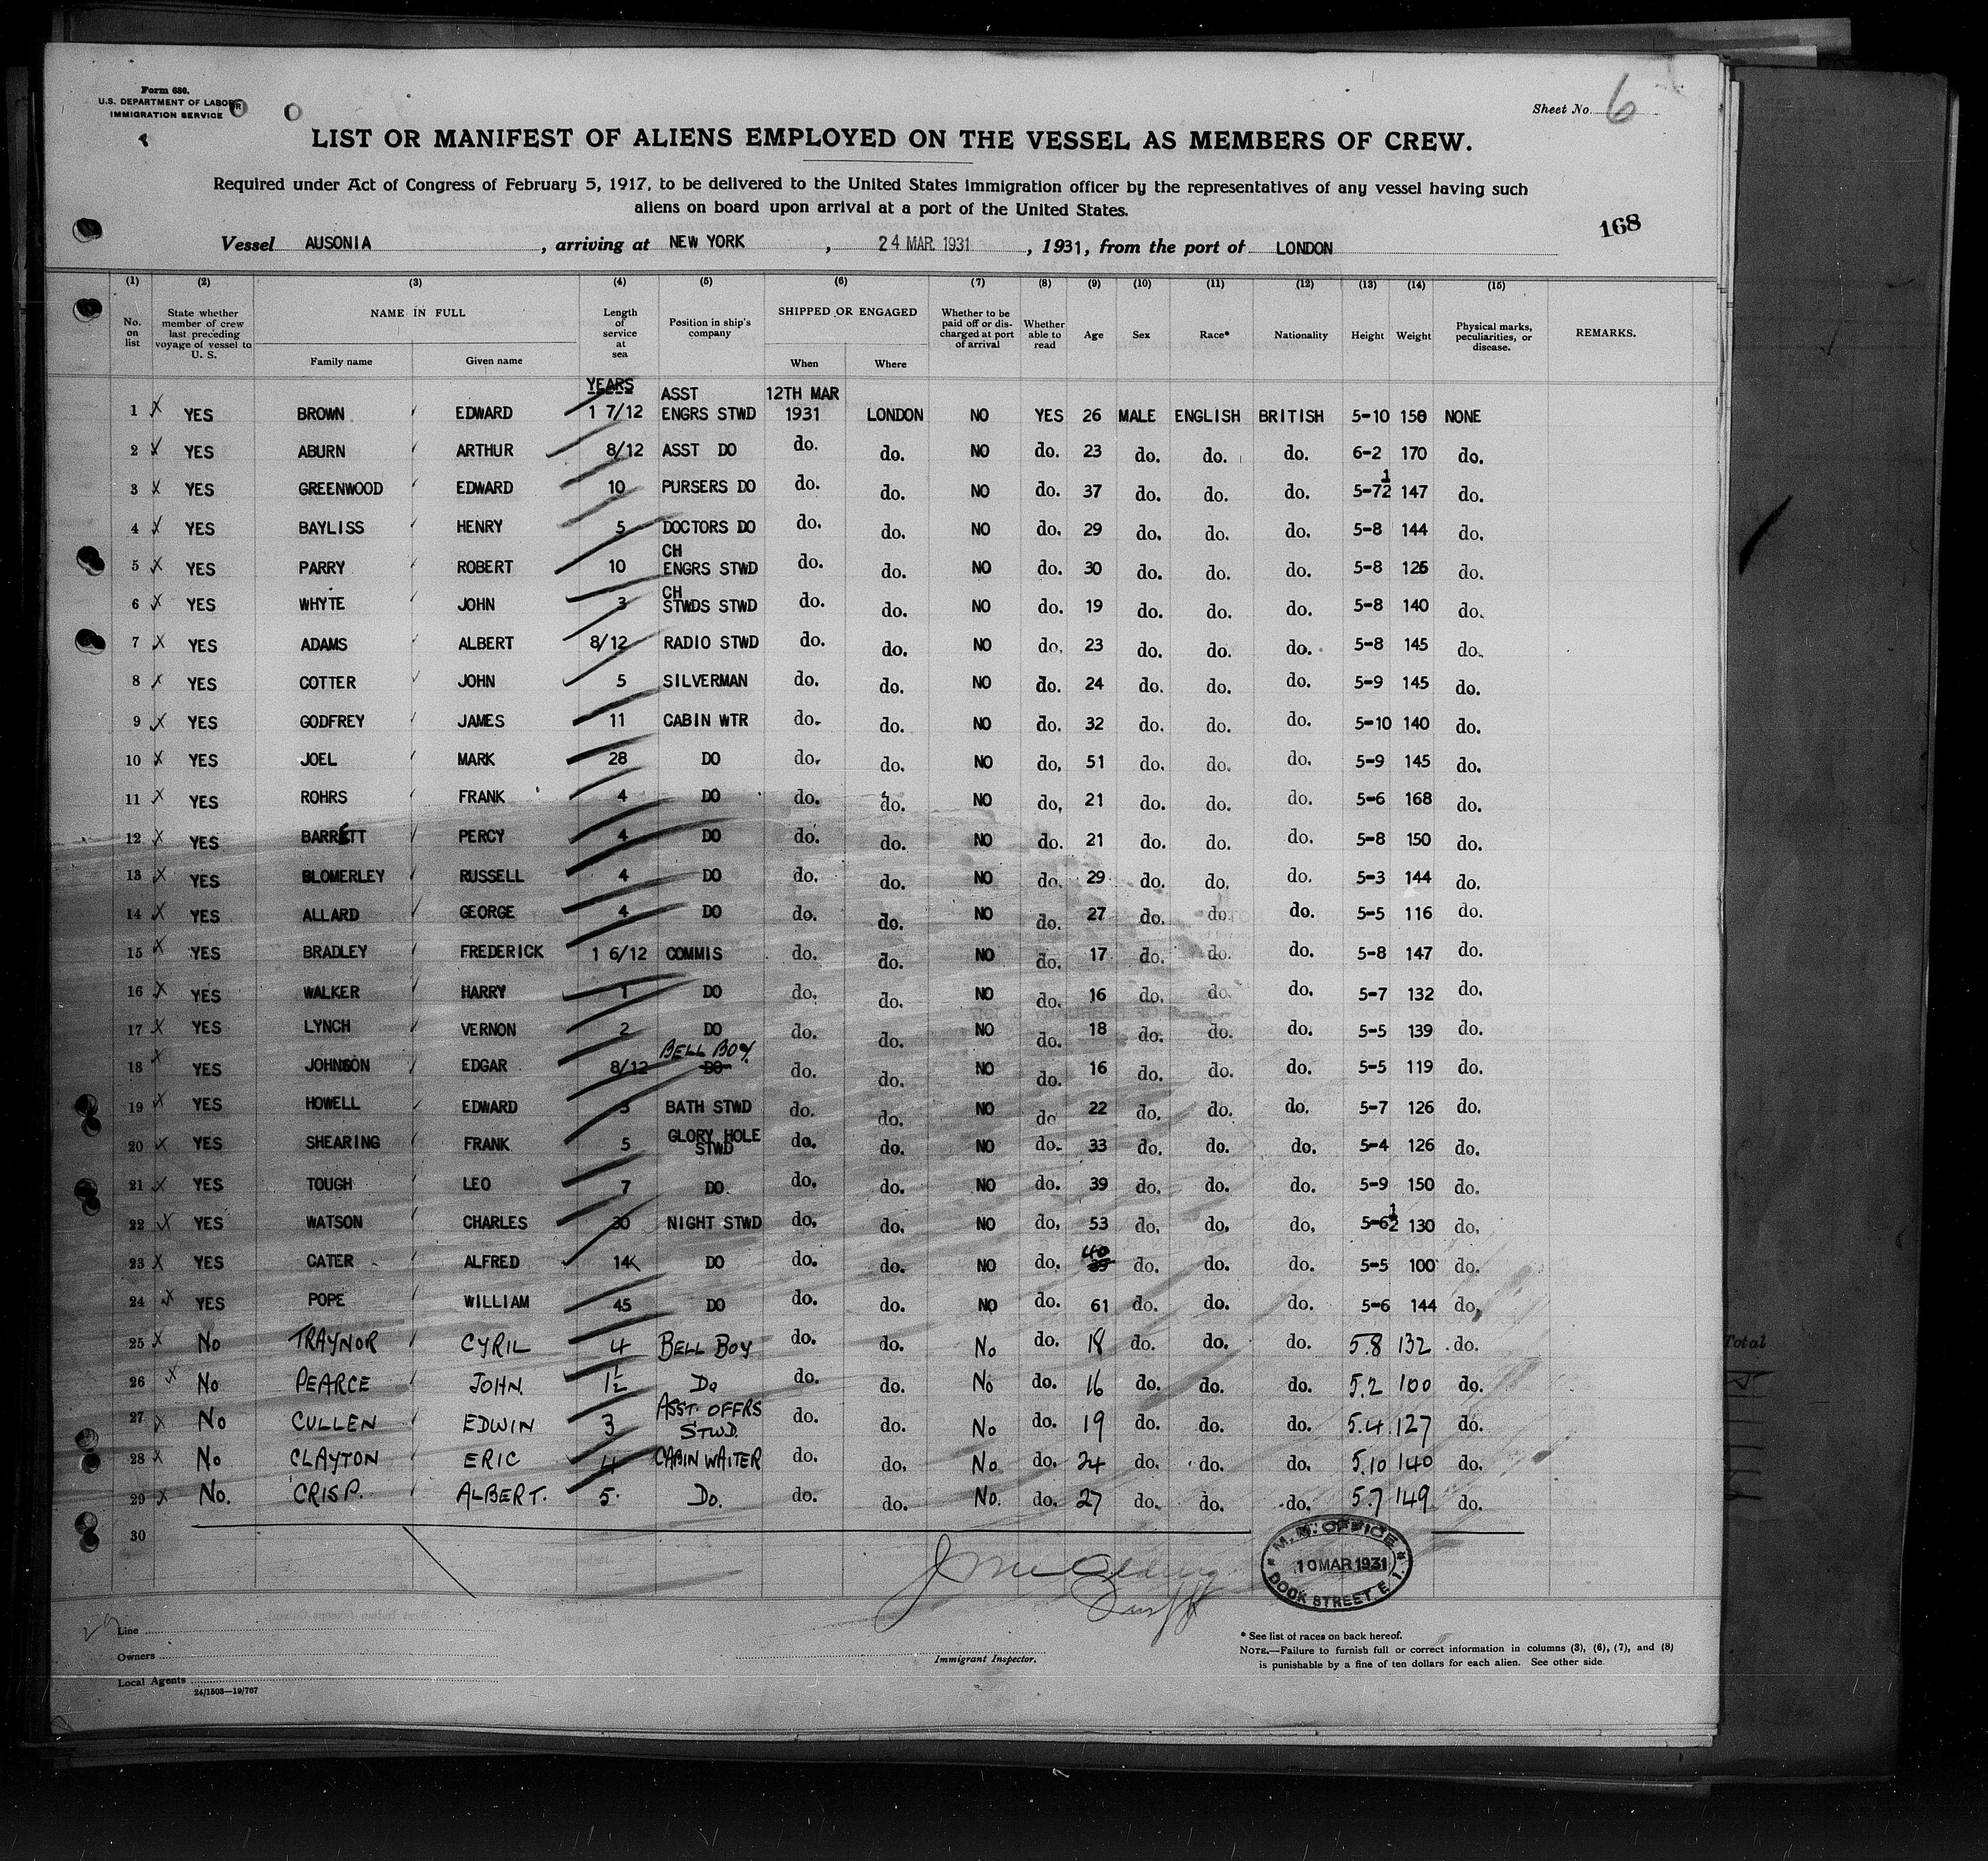 Form 680.
U.S. DEPARTMENT OF LABOR
IMMIGRATION SERVICE
Sheet No. 6
LIST OR MANIFEST OF ALIENS EMPLOYED ON THE VESSEL AS MEMBERS OF CREW.
Required under Act of Congress of February 5, 1917, to be delivered to the United States immigration officer by the representatives of any vessel having such
aliens on board upon arrival at a port of the United States.
168
Vessel AUSONIA, arriving at NEW YORK, 24 MAR. 1931, 1931, from the port of LONDON
(1) (2) (3) (4) (5) (6) (7) (8) (9) (10) (11) (12) (13) (14) (15)
No. on list State whether member of crew last preceding voyage of vessel to U. S. NAME IN FULL Family name Given name Length of service at sea Position in ship's company SHIPPED OR ENGAGED When Where Whether to be paid off or discharged at port of arrival Whether able to read Age Sex Race* Nationality Height Weight Physical marks, peculiarities, or disease. REMARKS.
YEARS
1 YES BROWN EDWARD 1 7/12 ASST ENGRS STWD 12TH MAR 1931 LONDON NO YES 26 MALE ENGLISH BRITISH 5-10 150 NONE
2 YES ABURN ARTHUR 8/12 ASST DO do. do. NO do. 23 do. do. do. 6-2 170 do.
3 YES GREENWOOD EDWARD 10 PURSERS DO do. do. NO do. 37 do. do. do. 5-7½ 147 do.
4 YES BAYLISS HENRY 5 DOCTORS DO do. do. NO do. 29 do. do. do. 5-8 144 do.
5 YES PARRY ROBERT 10 CH ENGRS STWD do. do. NO do. 30 do. do. do. 5-8 126 do.
6 YES WHYTE JOHN 3 CH STWDS STWD do. do. NO do. 19 do. do. do. 5-8 140 do.
7 YES ADAMS ALBERT 8/12 RADIO STWD do. do. NO do. 23 do. do. do. 5-8 145 do.
8 YES COTTER JOHN 5 SILVERMAN do. do. NO do. 24 do. do. do. 5-9 145 do.
9 YES GODFREY JAMES 11 CABIN WTR do. do. NO do. 32 do. do. do. 5-10 140 do.
10 YES JOEL MARK 28 DO do. do. NO do. 51 do. do. do. 5-9 145 do.
11 YES ROHRS FRANK 4 DO do. do. NO do. 21 do. do. do. 5-6 168 do.
12 YES BARRETT PERCY 4 DO do. do. NO do. 21 do. do. do. 5-8 150 do.
13 YES BLOMERLEY RUSSELL 4 DO do. do. NO do. 29 do. do. do. 5-3 144 do.
14 YES ALLARD GEORGE 4 DO do. do. NO do. 27 do. do. do. 5-5 116 do.
15 YES BRADLEY FREDERICK 1 6/12 COMMIS do. do. NO do. 17 do. do. do. 5-8 147 do.
16 YES WALKER HARRY 1 DO do. do. NO do. 16 do. do. do. 5-7 132 do.
17 YES LYNCH VERNON 2 DO do. do. NO do. 18 do. do. do. 5-5 139 do.
18 YES JOHNSON EDGAR 8/12 BELL BOY DO do. do. NO do. 16 do. do. do. 5-5 119 do.
19 YES HOWELL EDWARD 3 BATH STWD do. do. NO do 22 do. do. do. 5-7 126 do.
20 YES SHEARING FRANK 5 GLORY HOLE STWD do. do. NO do. 33 do. do. do. 5-4 126 do.
21 YES TOUGH LEO 7 DO. do. do. NO do. 39 do. do. do. 5-9 150 do.
22 YES WATSON CHARLES 30 NIGHT STWD do. do. NO do. 53 do. do. do. 5-6½ 130 do.
23 YES CATER ALFRED 14 DO do. do. NO do. 40 do. do. do. 5-5 100 do.
24 YES POPE WILLIAM 45 DO do. do. NO do. 61 do. do. do. 5-6 144 do.
25 No TRAYNOR CYRIL 4 BELL BOY do. do. No do. 18 do. do. do. 5.8 132 do.
26 No PEARCE JOHN. 1½ Do do. do. No do. 16 do. do. do. 5.2 100 do.
27 No CULLEN EDWIN 3 ASST. OFFRS STWD. do. do. No do. 19 do. do. do. 5.4. 127 do.
28 No CLAYTON ERIC 4 CABIN WAITER do. do. No do. 24 do. do. do. 5.10 140 do.
29 No. CRISP. ALBERT. 5. Do. do. do. No. do. 27 do. do. do. 5.7 149 do.
30
M. M. OFFICE
10 MAR 1931
DOCK STREET. E. 1.
Line
Owners
Local Agents
24/1503—19/767
Immigrant Inspector.
* See list of races on back hereof.
NOTE.—Failure to furnish full or correct information in columns (3), (6), (7), and (8)
is punishable by a fine of ten dollars for each alien. See other side.
Total